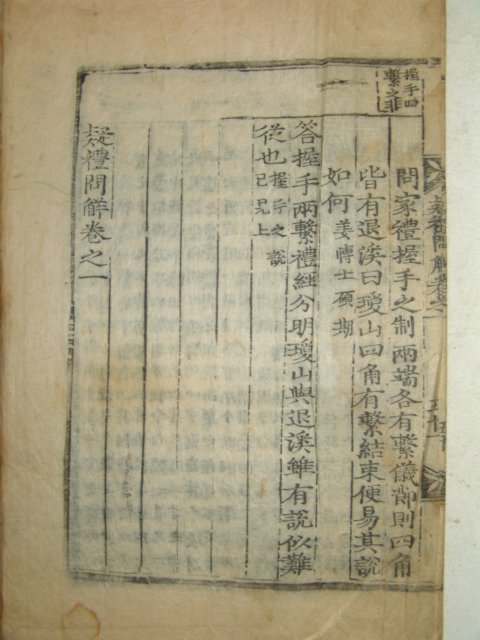 握手四
繫之非
問家禮握手之制兩端各有繫儀節則四角
皆有退溪曰瓊山四角有繫結束便易其說
如何 姜博士碩期
答握手兩繫禮經分明瓊山與退溪雖有說似難
從也 握手之說已見上
疑禮問解卷之一
疑禮問解卷之一